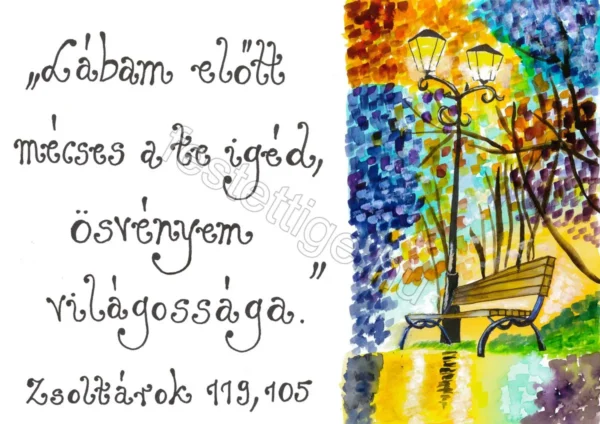 „Lábam előtt
mécses a te igéd,
ösvényem
világossága.”
Zsoltárok 119,105